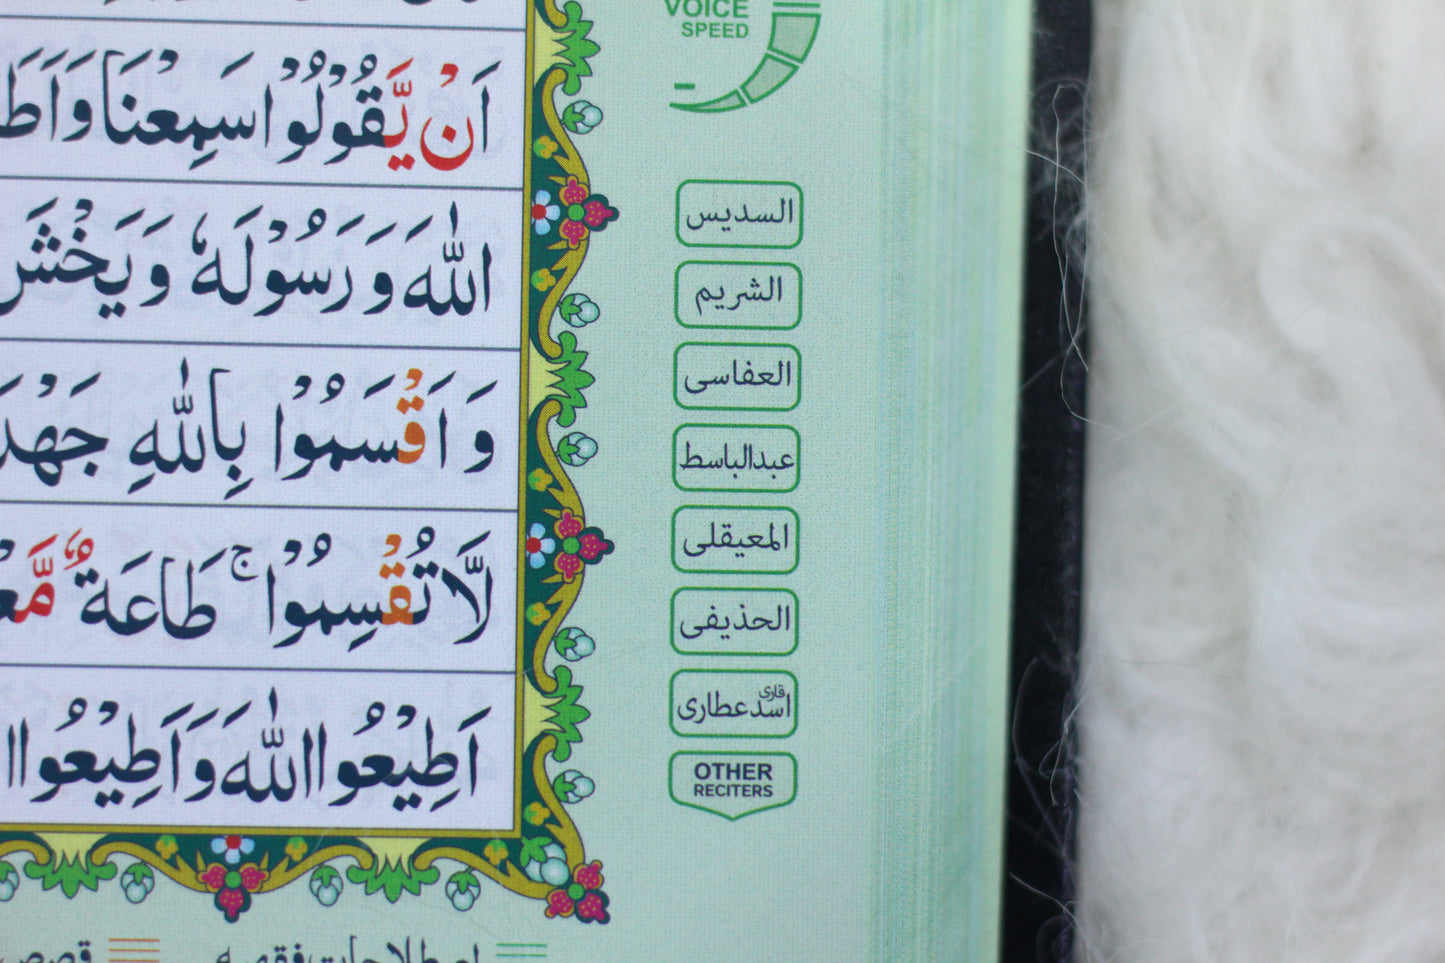 VOICE
SPEED
اَنْ يَّقُوْلُوْا سَمِعْنَا وَاَطَ
اللّٰهَ وَرَسُوْلَهٗ وَيَخْشَ
وَاَقْسَمُوْا بِاللّٰهِ جَهْدَ
لَّا تُقْسِمُوْا ۚ طَاعَةٌ مَّعْ
اَطِيْعُوا اللّٰهَ وَاَطِيْعُوا ا
السديس
الشريم
العفاسی
عبدالباسط
المعيقلی
الحذيفی
قاری
اسد عطاری
OTHER
RECITERS